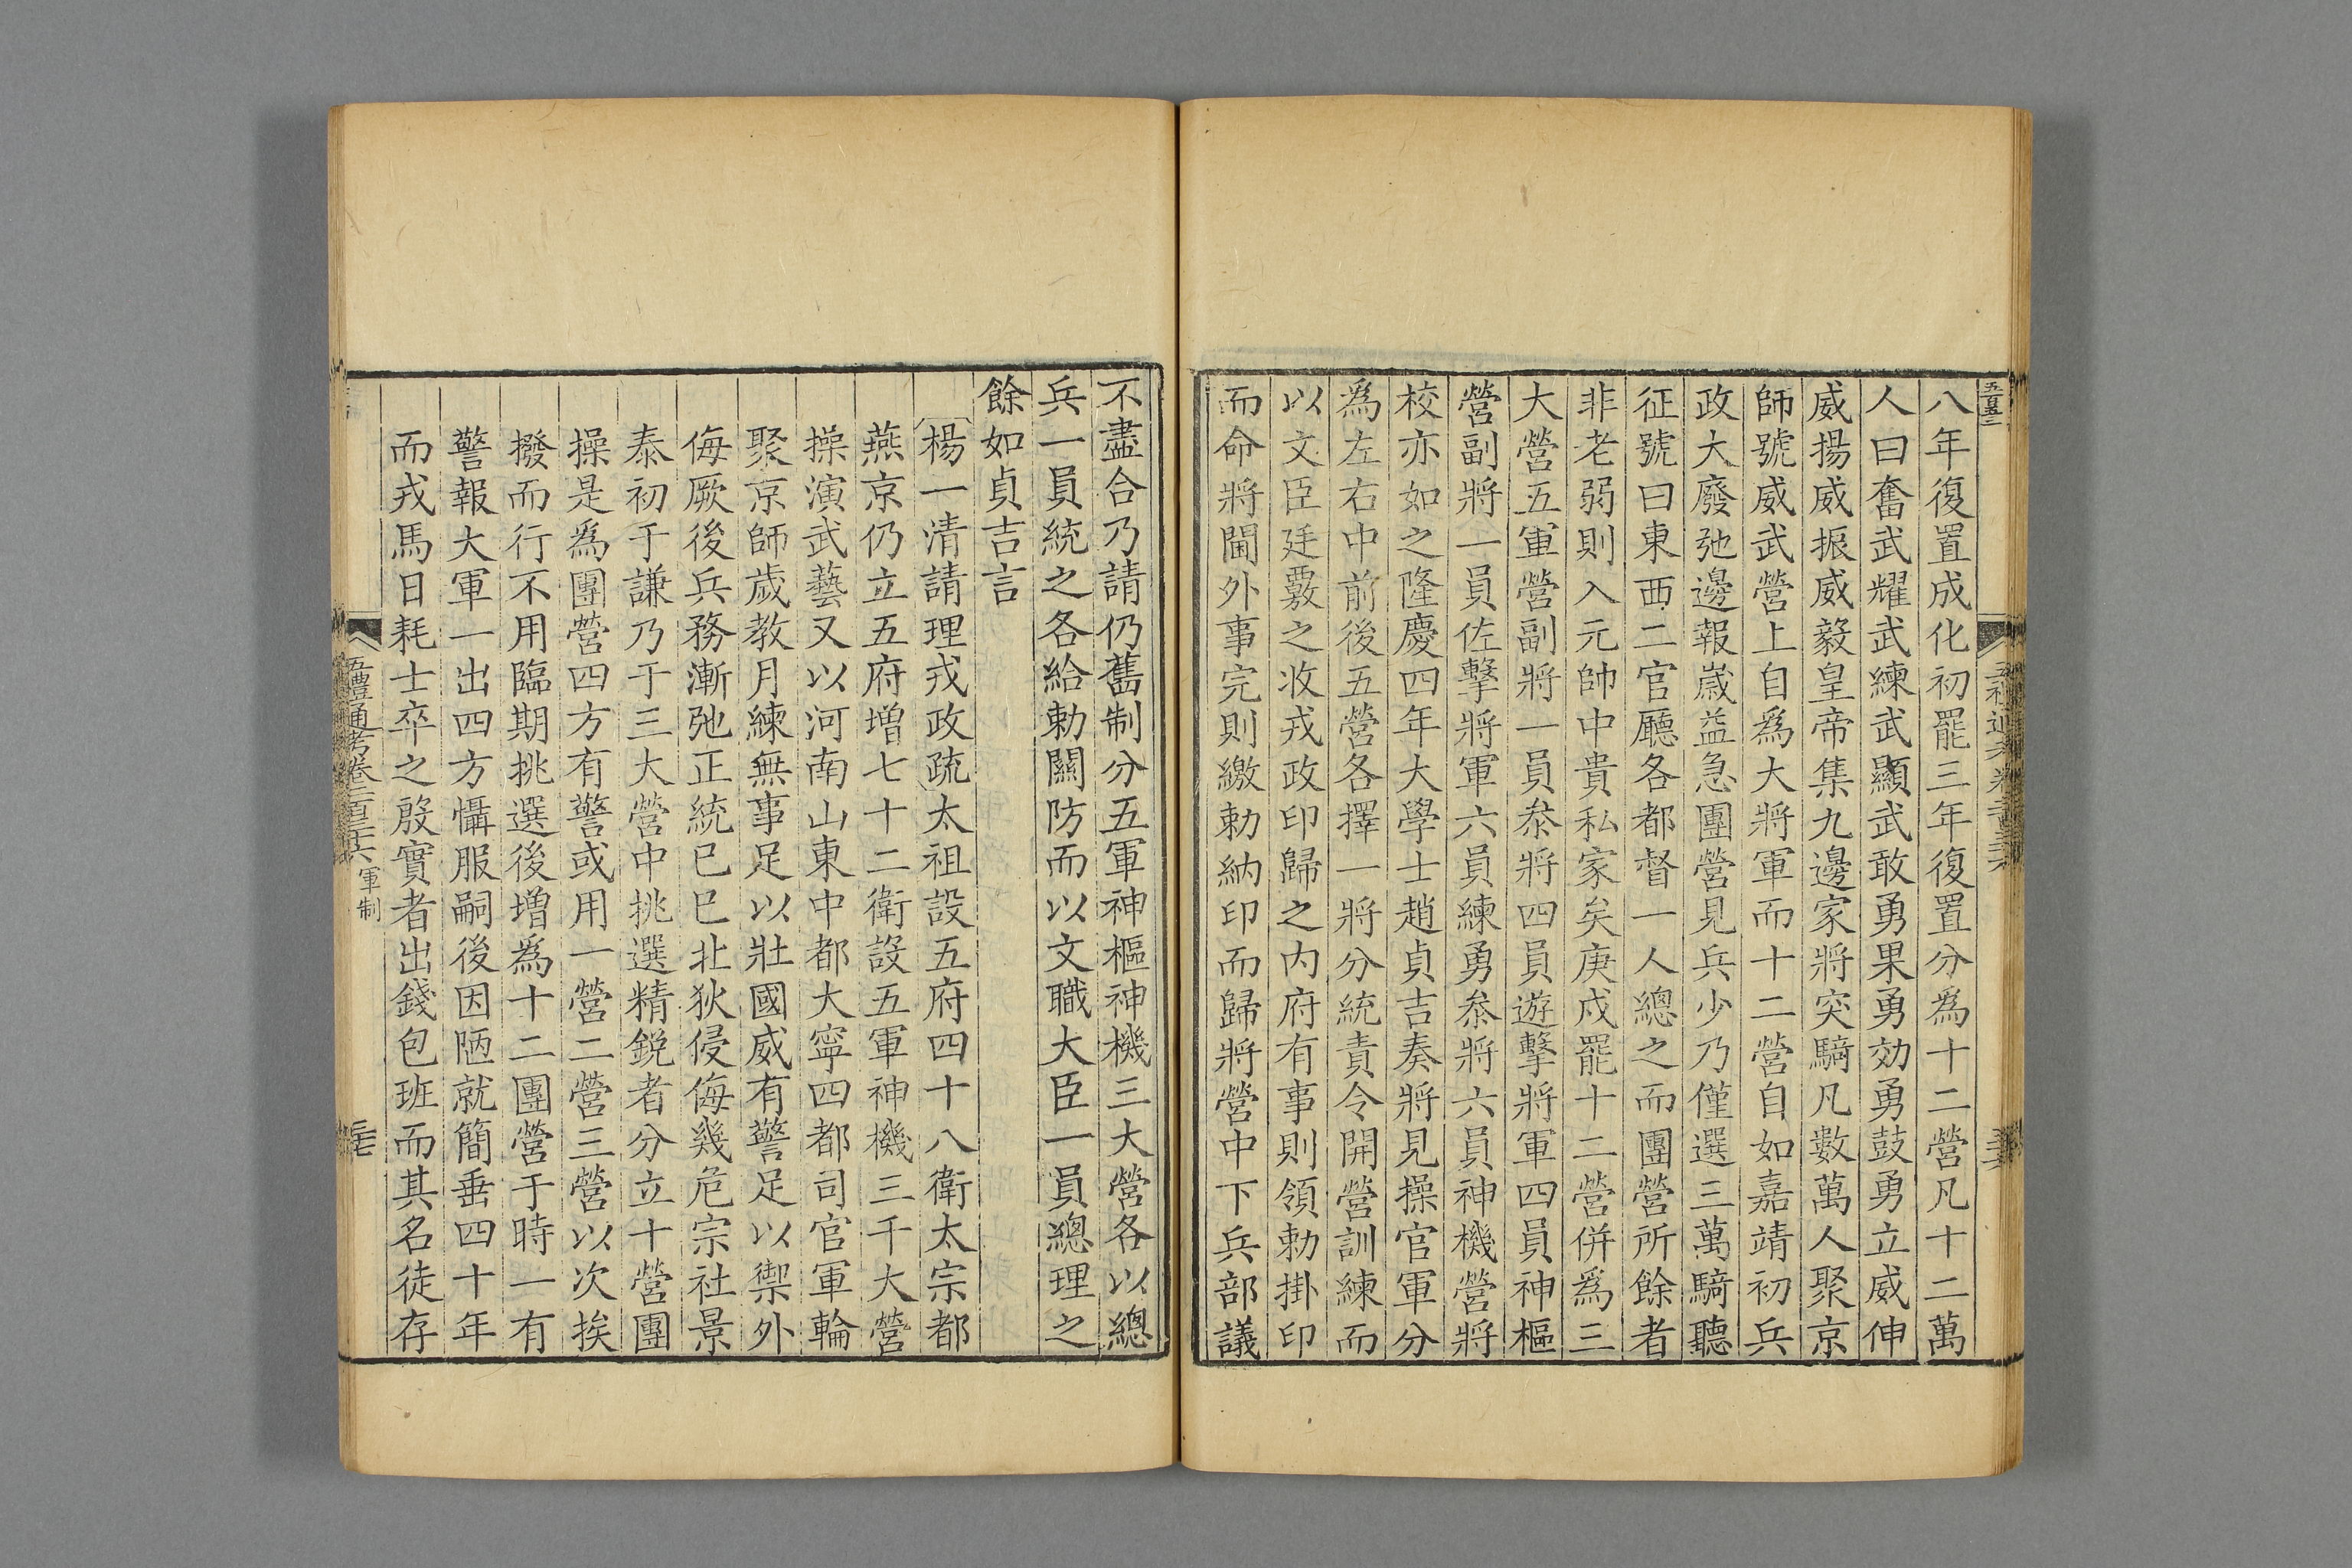 八年復置成化初罷三年復置分爲十二營凡十二萬
人曰奮武耀武練武顯武敢勇果勇効勇鼓勇立威伸
威揚威振威毅皇帝集九邊家將突騎凡數萬人聚京
師號威武營上自爲大將軍而十二營自如嘉靖初兵
政大廢弛邊報嵗益急團營見兵少乃僅選三萬騎聽
征號曰東西二官廳各都督一人總之而團營所餘者
非老弱則入元帥中貴私家矣庚戍罷十二營併爲三
大營五軍營副將一員叅將四員遊擊將軍四員神樞
營副將一員佐擊將軍六員練勇叅將六員神機營將
校亦如之隆慶四年大學士趙貞吉奏將見操官軍分
爲左右中前後五營各擇一將分統責令開營訓練而
以文臣廷覈之收戎政印歸之内府有事則領勅掛印
而命將閫外事完則繳勅納印而歸將營中下兵部議
不盡合乃請仍舊制分五軍神樞神機三大營各以總
兵一員統之各給勅關防而以文職大臣一員總理之
餘如貞吉言
楊一清請理戎政疏太祖設五府四十八衛太宗都
燕京仍立五府增七十二衛設五軍神機三千大營
操演武藝又以河南山東中都大寧四都司官軍輪
聚京師歲教月練無事足以壯國威有警足以禦外
侮厥後兵務漸弛正統已巳北狄侵侮幾危宗社景
泰初于謙乃于三大營中挑選精鋭者分立十營團
操是爲團營四方有警或用一營二營三營以次挨
撥而行不用臨期挑選後增爲十二團營于時一有
警報大軍一出四方懾服嗣後因陋就簡垂四十年
而戎馬日耗士卒之殷實者出錢包班而其名徒存
五禮通考卷二百三十六 軍制